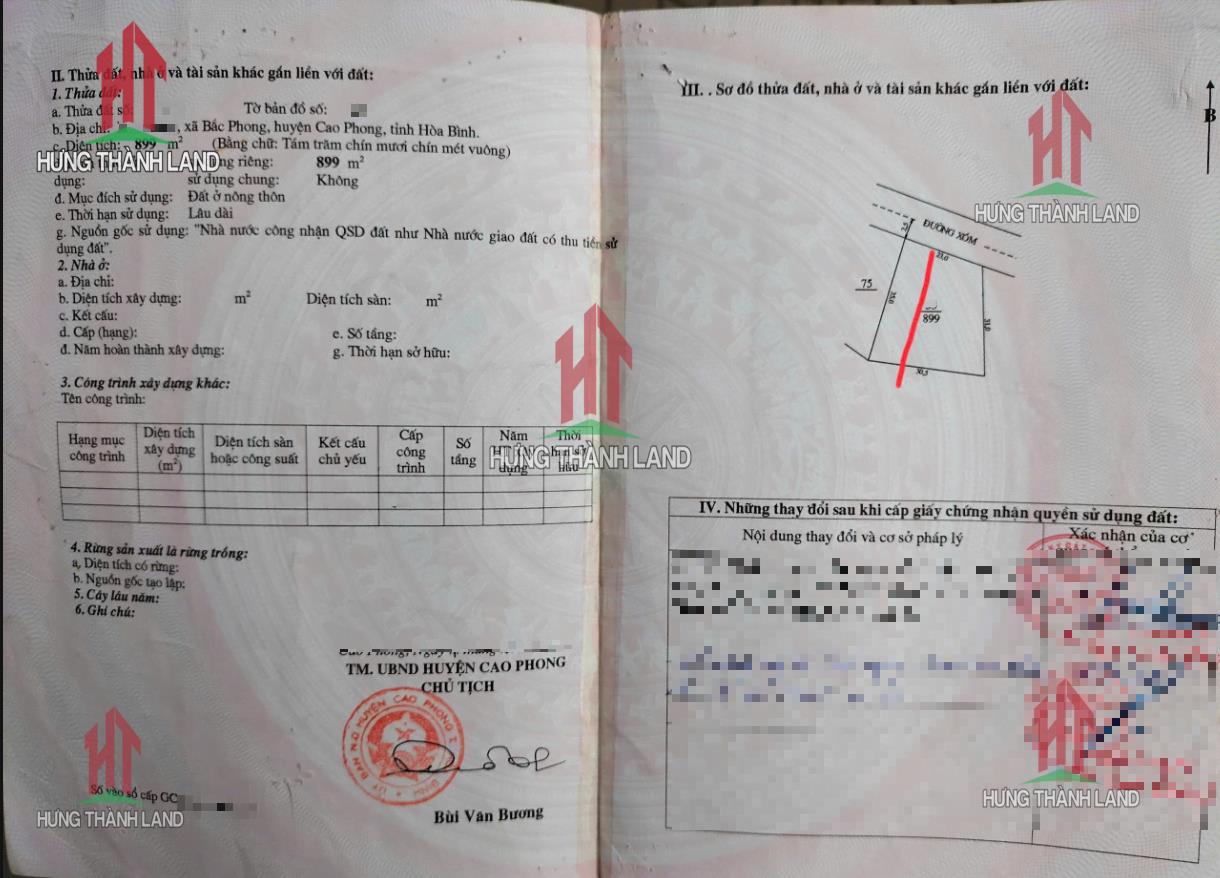 II. Thửa đất, nhà ở và tài sản khác gắn liền với đất:
1. Thửa đất:
a. Thửa đất số: Tờ bản đồ số:
b. Địa chỉ: , xã Bắc Phong, huyện Cao Phong, tỉnh Hòa Bình.
c. Diện tích: 899 m² (Bằng chữ: Tám trăm chín mươi chín mét vuông)
riêng: 899 m²
dụng: sử dụng chung: Không
đ. Mục đích sử dụng: Đất ở nông thôn
e. Thời hạn sử dụng: Lâu dài
g. Nguồn gốc sử dụng: "Nhà nước công nhận QSD đất như Nhà nước giao đất có thu tiền sử
dụng đất".
2. Nhà ở:
a. Địa chỉ:
b. Diện tích xây dựng: m² Diện tích sàn: m²
c. Kết cấu:
d. Cấp (hạng): e. Số tầng:
đ. Năm hoàn thành xây dựng: g. Thời hạn sở hữu:
3. Công trình xây dựng khác:
Tên công trình:
Hạng mục công trình
Diện tích xây dựng (m²)
Diện tích sàn hoặc công suất
Kết cấu chủ yếu
Cấp công trình
Số tầng
Năm dựng
Thời hữu
4. Rừng sản xuất là rừng trồng:
a, Diện tích có rừng:
b. Nguồn gốc tạo lập:
5. Cây lâu năm:
6. Ghi chú:
TM. UBND HUYỆN CAO PHONG
CHỦ TỊCH
Bùi Văn Bương
Số vào sổ cấp GC
III. . Sơ đồ thửa đất, nhà ở và tài sản khác gắn liền với đất:
B
ĐƯỜNG XÓM
23,0
75
35,0
899
31,0
30,5
IV. Những thay đổi sau khi cấp giấy chứng nhận quyền sử dụng đất:
Nội dung thay đổi và cơ sở pháp lý
Xác nhận của cơ
HƯNG THÀNH LAND
HƯNG THÀNH LAND
HƯNG THÀNH LAND
HƯNG THÀNH LAND
HƯNG THÀNH LAND